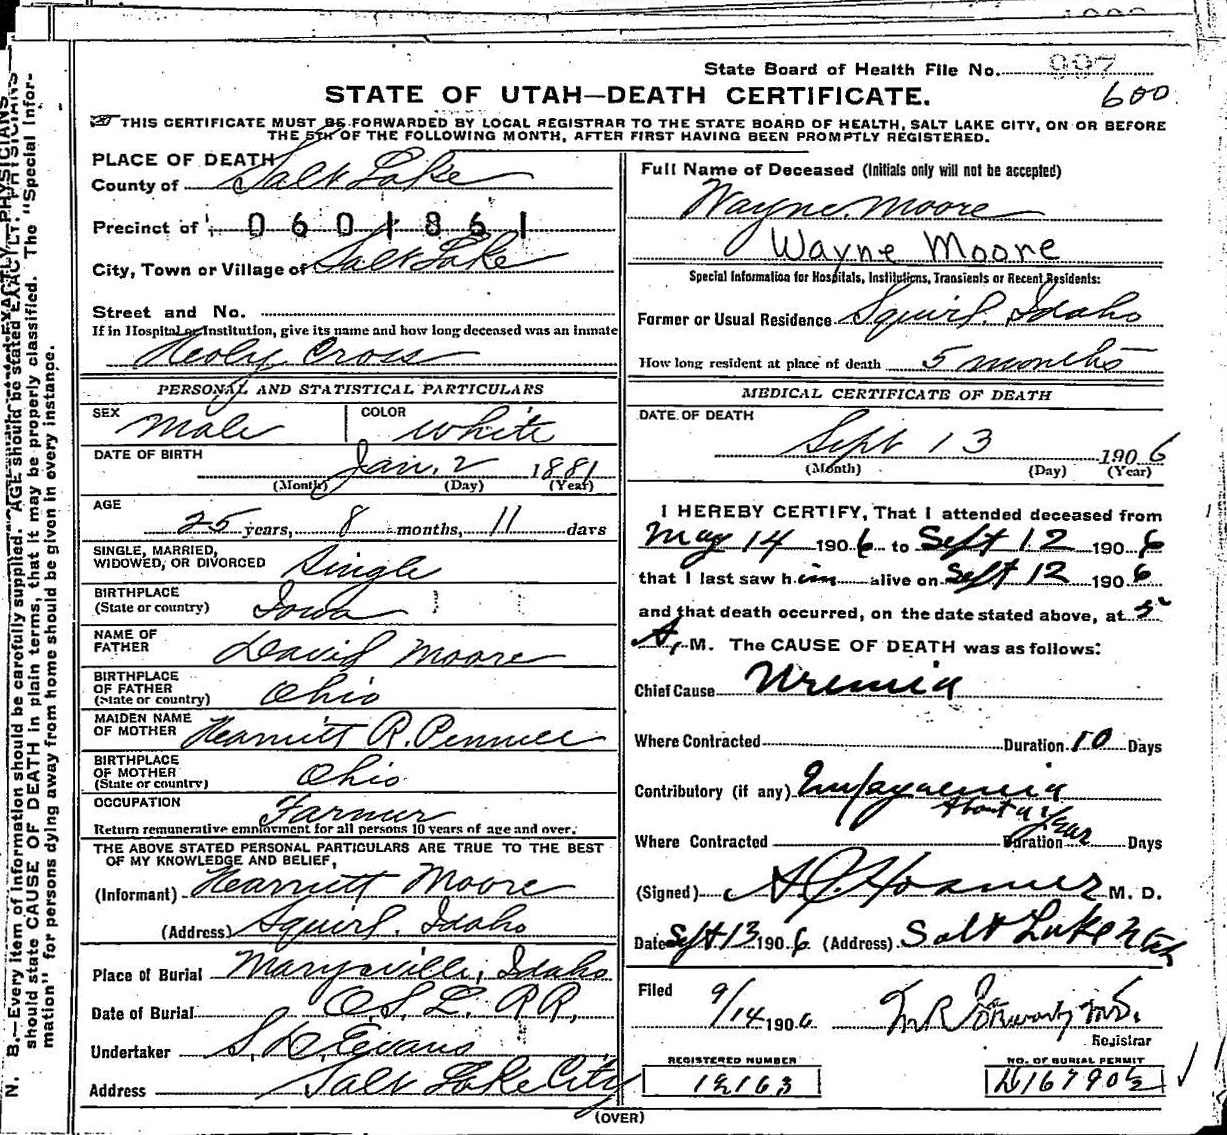 State Board of Health File No. 997
600
STATE OF UTAH—DEATH CERTIFICATE.
THIS CERTIFICATE MUST BE FORWARDED BY LOCAL REGISTRAR TO THE STATE BOARD OF HEALTH, SALT LAKE CITY, ON OR BEFORE
THE 5TH OF THE FOLLOWING MONTH, AFTER FIRST HAVING BEEN PROMPTLY REGISTERED.
PLACE OF DEATH
County of Salt Lake
Precinct of 0601861
City, Town or Village of Salt Lake
Street and No.
If in Hospital or Institution, give its name and how long deceased was an inmate
Holy Cross
PERSONAL AND STATISTICAL PARTICULARS
SEX Male COLOR White
DATE OF BIRTH Jan. 2 1881
(Month) (Day) (Year)
AGE 25 years, 8 months, 11 days
SINGLE, MARRIED,
WIDOWED, OR DIVORCED Single
BIRTHPLACE
(State or country) Iowa
NAME OF
FATHER David Moore
BIRTHPLACE
OF FATHER
(State or country) Ohio
MAIDEN NAME
OF MOTHER Harriett R.
BIRTHPLACE
OF MOTHER
(State or country) Ohio
OCCUPATION Farmer
Return remunerative employment for all persons 10 years of age and over.
THE ABOVE STATED PERSONAL PARTICULARS ARE TRUE TO THE BEST
OF MY KNOWLEDGE AND BELIEF,
(Informant) Harriett Moore
(Address) Squirl. Idaho
Place of Burial Marysville, Idaho
Date of Burial O.S.L. RR.
Undertaker S. D. Evans
Address Salt Lake City
Full Name of Deceased (Initials only will not be accepted)
Wayne Moore
Wayne Moore
Special Information for Hospitals, Institutions, Transients or Recent Residents:
Former or Usual Residence Squirl. Idaho
How long resident at place of death 5 months
MEDICAL CERTIFICATE OF DEATH
DATE OF DEATH
Sept 13 1906
(Month) (Day) (Year)
I HEREBY CERTIFY, That I attended deceased from
May 14 1906 to Sept 12 1906
that I last saw him alive on Sept 12 1906
and that death occurred, on the date stated above, at 5
A. M. The CAUSE OF DEATH was as follows:
Chief Cause Uremia
Where Contracted Duration 10 Days
Contributory (if any) Empyaemia
About a year
Where Contracted Duration Days
(Signed) M. D.
Date Sept 13 1906 (Address) Salt Lake Utah
Filed 9/14 1906
Registrar
REGISTERED NUMBER NO. OF BURIAL PERMIT
(OVER)
N. B.—Every item of information should be carefully supplied. AGE should be stated EXACTLY. PHYSICIANS
should state CAUSE OF DEATH in plain terms, that it may be properly classified. The "Special Infor-
mation" for persons dying away from home should be given in every instance.